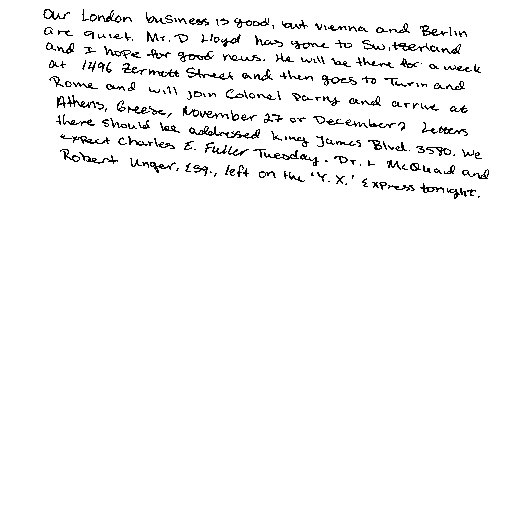 Our London business is good, but vienna and Berlin
are quiet. Mr. D Lloyd has gone to Switzerland
and I hope for good news. He will be there for a week
at 1496 Zermott Street and then goes to Turin and
Rome and will join Colonel Parry and arrive at
Athens, Greese, November 27 or December 2 Letters
there should be addressed King James Blvd. 3580. We
expect Charles E. Fuller Tuesday. Dr. L McQuaid and
Robert Unger, Esq., left on the 'Y.X.' Express tonight.